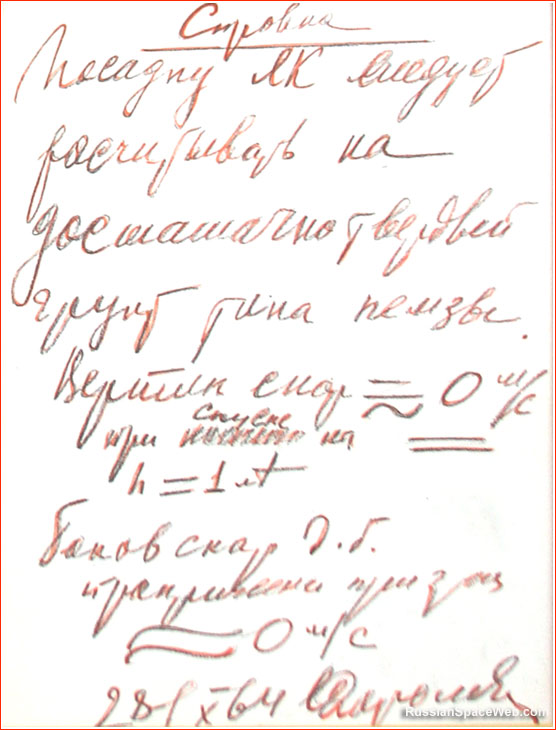 Справка
Посадку ЛК следует
расчитывать на
достаточно твердый
грунт типа пемзы.
Вертик скор ≈ 0 м/с
при спуске на
h = 1 м
Боков скор д.б.
при
≈ 0 м/с
28/X 64 Королев
RussianSpaceWeb.com